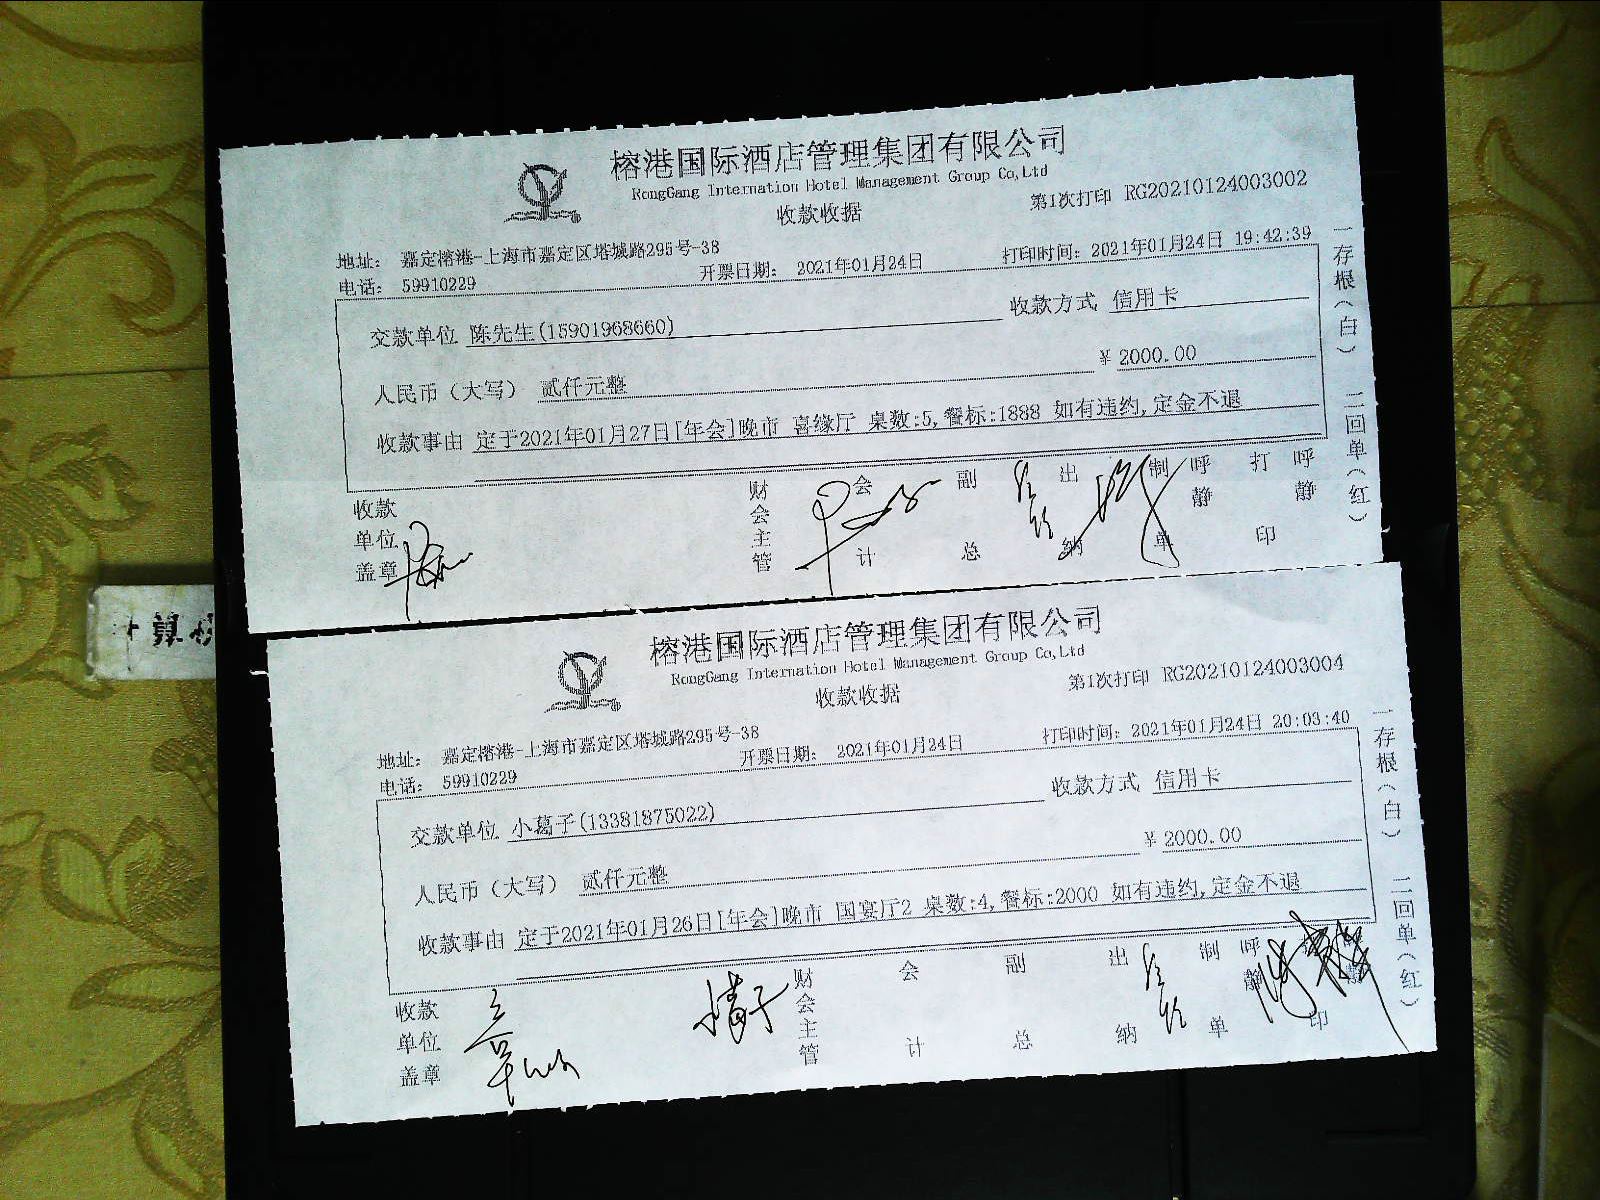 榕港国际酒店管理集团有限公司
RongGang Internation Hotel Management Group Co,Ltd
收款收据
第1次打印 RG20210124003002
地址： 嘉定榕港-上海市嘉定区塔城路295号-38
电话： 59910229
开票日期： 2021年01月24日
打印时间：2021年01月24日 19:42:39
交款单位 陈先生(15901968660)
收款方式 信用卡
人民币（大写） 贰仟元整
¥ 2000.00
收款事由 定于2021年01月27日[年会]晚市 喜缘厅 桌数:5,餐标:1888 如有违约,定金不退
收款单位盖章
财会主管
会计
副总
出纳
制单
呼静
打印
呼静
一存根（白）
二回单（红）
计算
榕港国际酒店管理集团有限公司
RongGang Internation Hotel Management Group Co,Ltd
收款收据
第1次打印 RG20210124003004
地址： 嘉定榕港-上海市嘉定区塔城路295号-38
电话： 59910229
开票日期： 2021年01月24日
打印时间：2021年01月24日 20:03:40
交款单位 小葛子(13381875022)
收款方式 信用卡
人民币（大写） 贰仟元整
¥ 2000.00
收款事由 定于2021年01月26日[年会]晚市 国宴厅2 桌数:4,餐标:2000 如有违约,定金不退
收款单位盖章
财会主管
会计
副总
出纳
制单
呼静
印
静
一存根（白）
二回单（红）